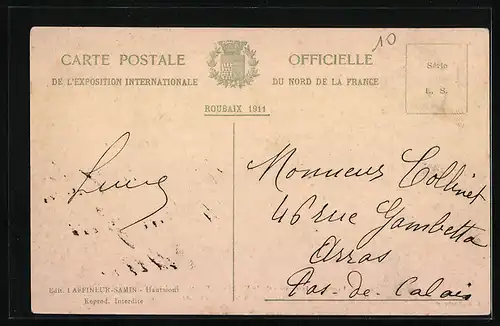 CARTE POSTALE OFFICIELLE
DE L'EXPOSITION INTERNATIONALE DU NORD DE LA FRANCE
ROUBAIX 1911
10
Série
E. S.
Monsieur Collinet
46 rue Gambetta
Arras
Pas-de-Calais
Edit. LAFFINEUR-SAMIN - Hautmont
Reprod. Interdite